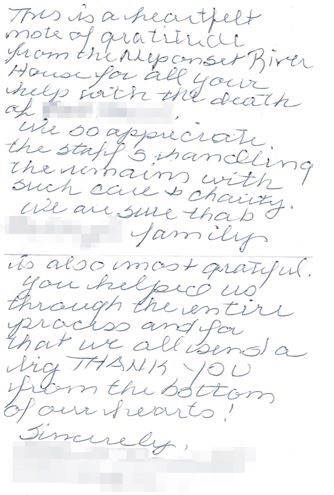 This is a heartfelt
note of gratitude
from the Neponset River
House for all your
help with the death
of
We so appreciate
the staff's handling
the remains with
such care & charity.
We are sure that
family
is also most grateful.
You helped us
through the entire
process and for
that we all send a
big THANK YOU
from the bottom
of our hearts!
Sincerely,